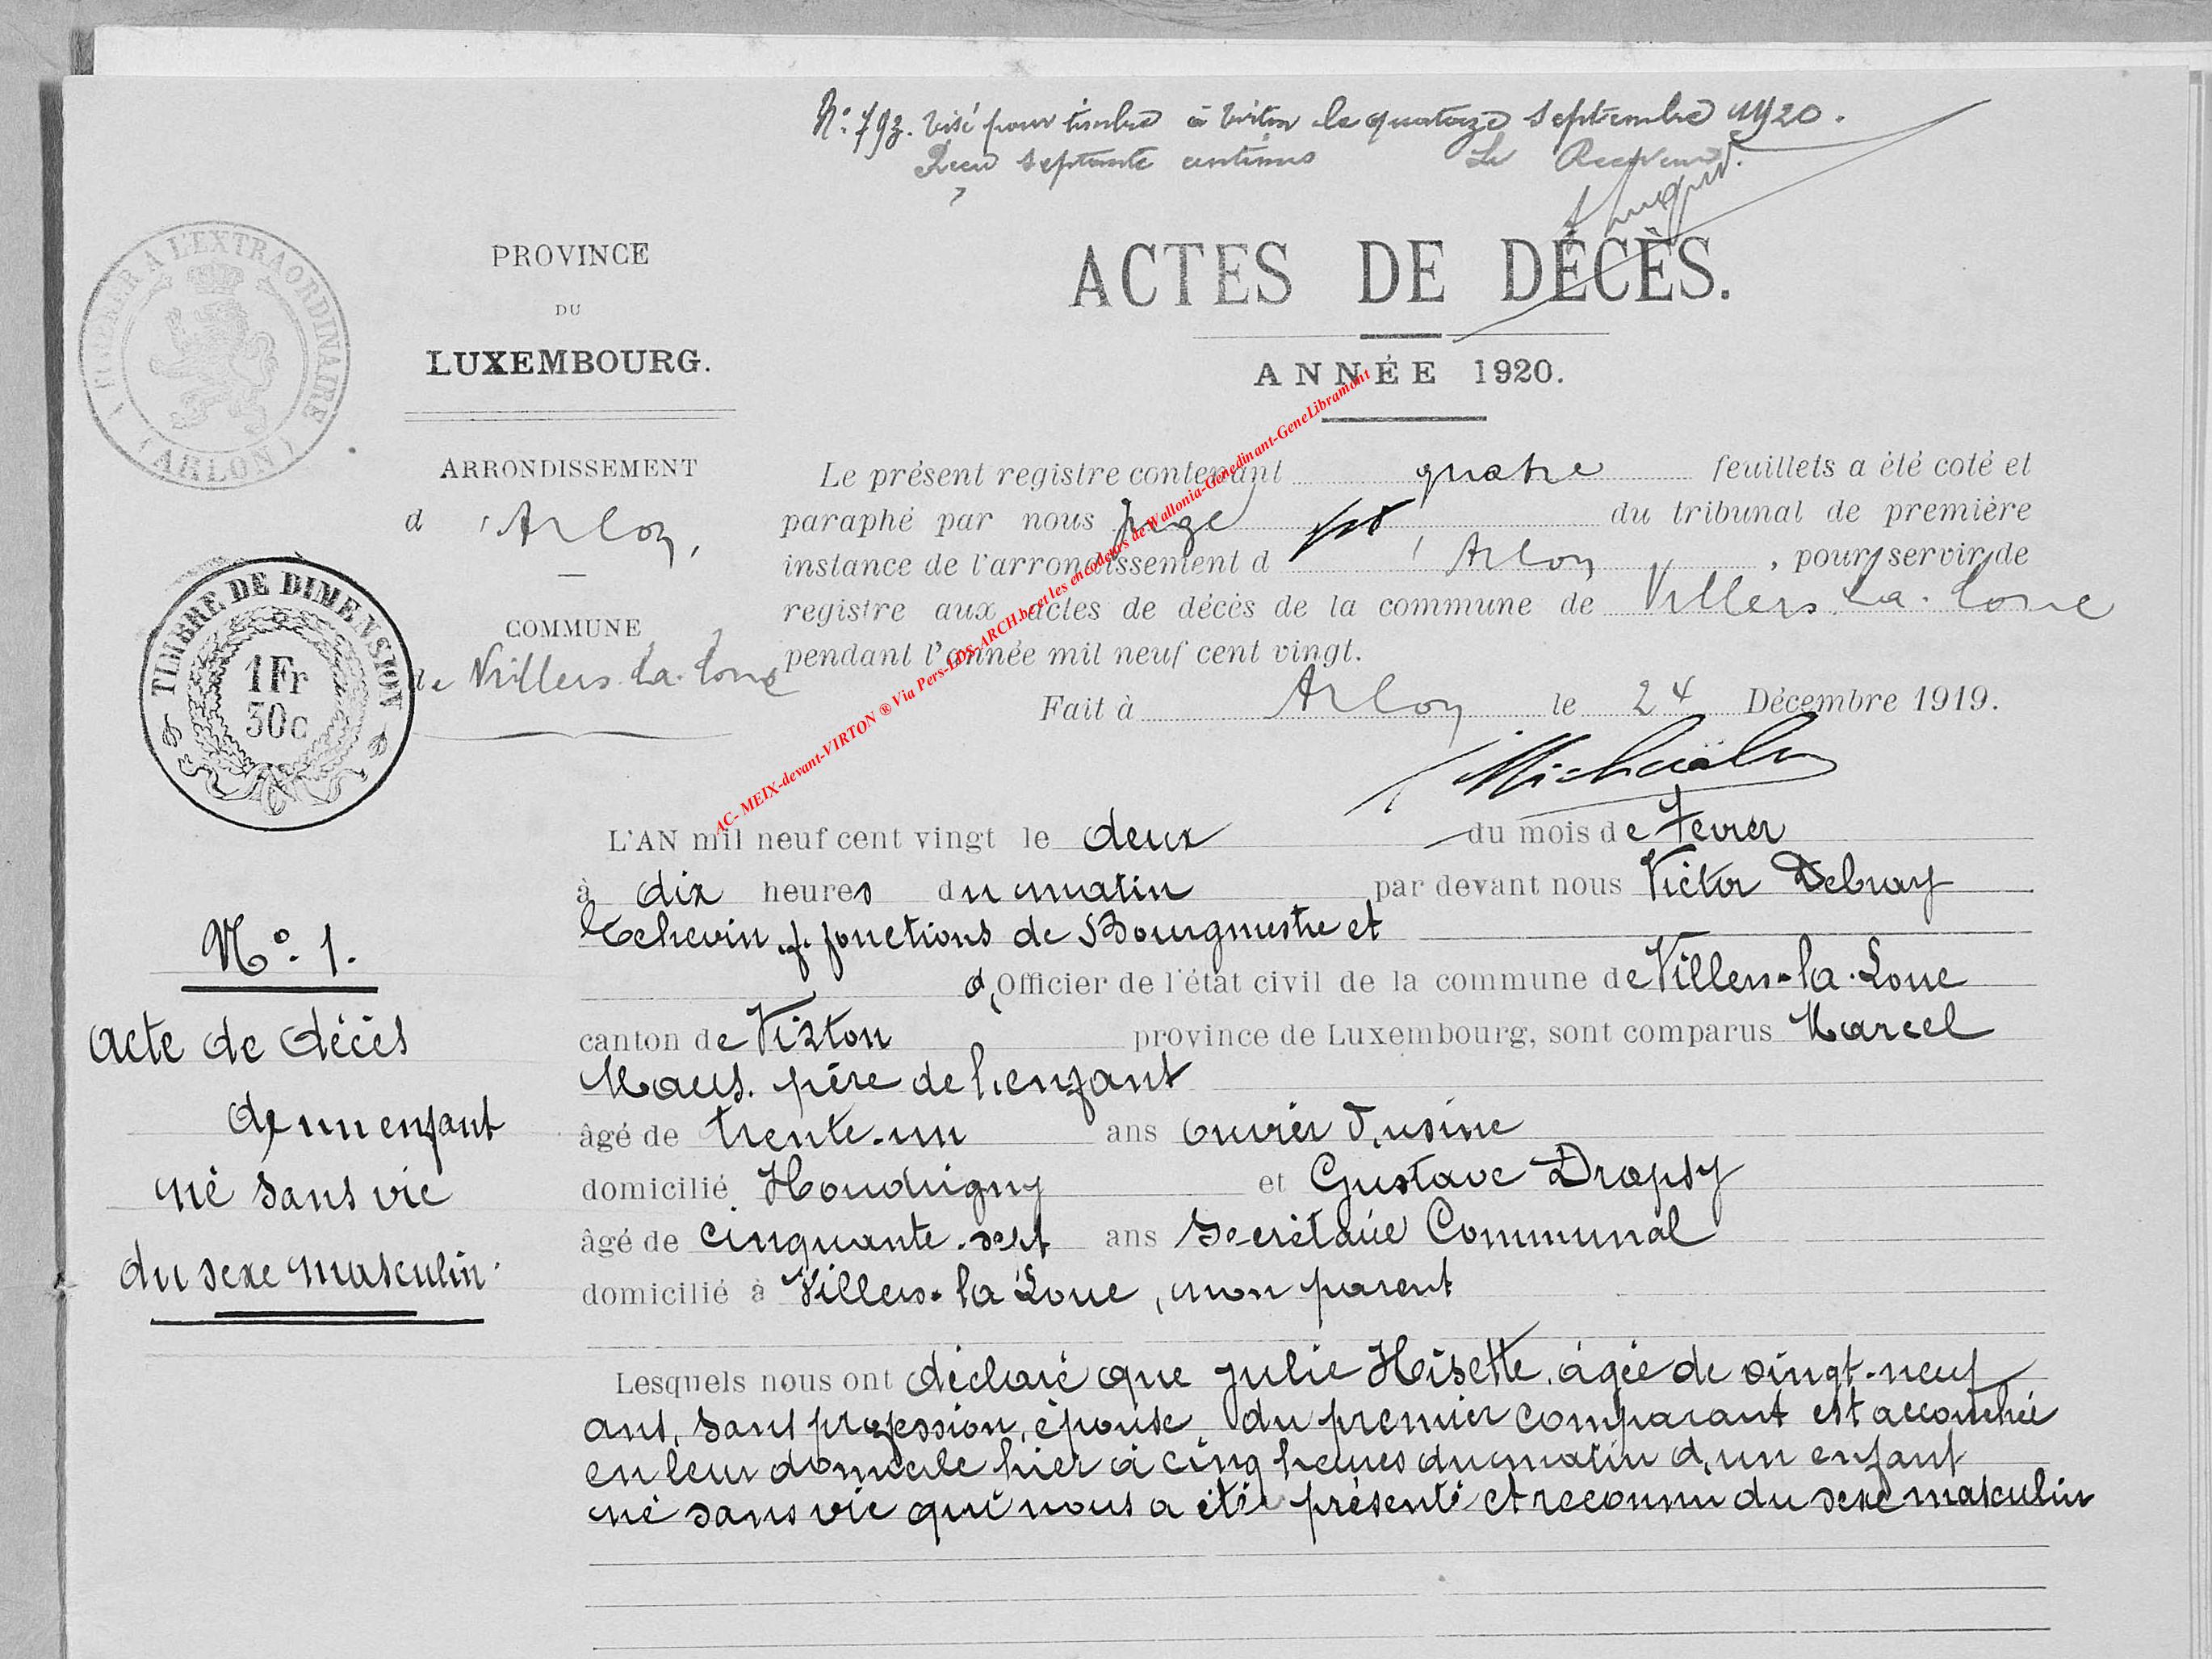 N° 793. Visé pour timbre à Virton le quatorze septembre 1920.
Reçu septante centimes Le Receveur.
TIMBRE A L'EXTRAORDINAIRE
(ARLON)
PROVINCE
DU
LUXEMBOURG.
ARRONDISSEMENT
d'Arlon,
COMMUNE
de Villers-la-Loue
TIMBRE DE DIMENSION
1Fr
30c
ACTES DE DÉCÈS.
ANNÉE 1920.
Le présent registre contenant quatre feuillets a été coté et
paraphé par nous juge du tribunal de première
instance de l'arrondissement d'Arlon, pour servir de
registre aux actes de décès de la commune de Villers-la-Loue
pendant l'année mil neuf cent vingt.
Fait à Arlon le 24 Décembre 1919.
AC- MEIX-devant-VIRTON ® Via Pers-LDS-ARCH.be et les encodeurs de Wallonia-Genedinant-GeneLibramont
N° 1.
acte de décès
de un enfant
né sans vie
du sexe masculin.
L'AN mil neuf cent vingt le deux du mois de Fevrer
à dix heures du matin par devant nous Victor Debray
Echevin f. fonctions de Bourgmestre et
Officier de l'état civil de la commune de Villers-la-Loue
canton de Virton province de Luxembourg, sont comparus Marcel
Maus. père de l'enfant
âgé de trente-un ans ouvrier d'usine
domicilié Houdrigny et Gustave Dropsy
âgé de cinquante-sept ans Secrétaire Communal
domicilié à Villers-la-Loue, non parent
Lesquels nous ont déclaré que Julie Hisette, âgée de vingt-neuf
ans, sans profession, épouse du premier comparant est accouchée
en leur domicile hier à cinq heures du matin d'un enfant
né sans vie qui nous a été présenté et reconnu du sexe masculin